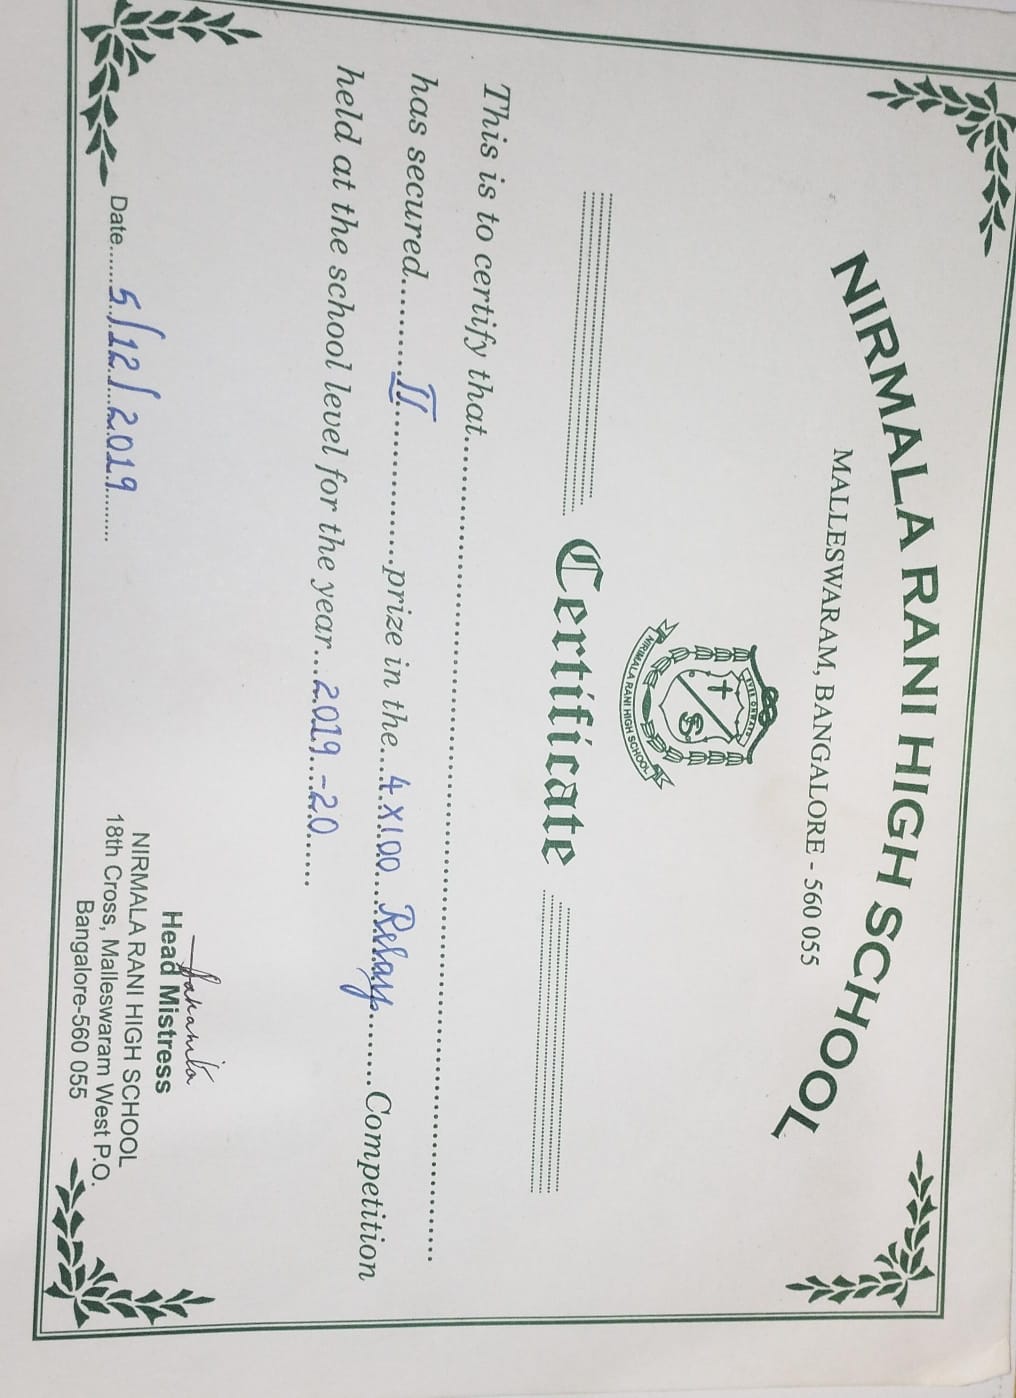 NIRMALA RANI HIGH SCHOOL
MALLESWARAM, BANGALORE - 560 055
EVER ONWARD
NIRMALA RANI HIGH SCHOOL
Certificate
This is to certify that
has secured II prize in the 4x100 Relay Competition
held at the school level for the year 2019-20
Date 5/12/2019
Head Mistress
NIRMALA RANI HIGH SCHOOL
18th Cross, Malleswaram West P.O.
Bangalore-560 055